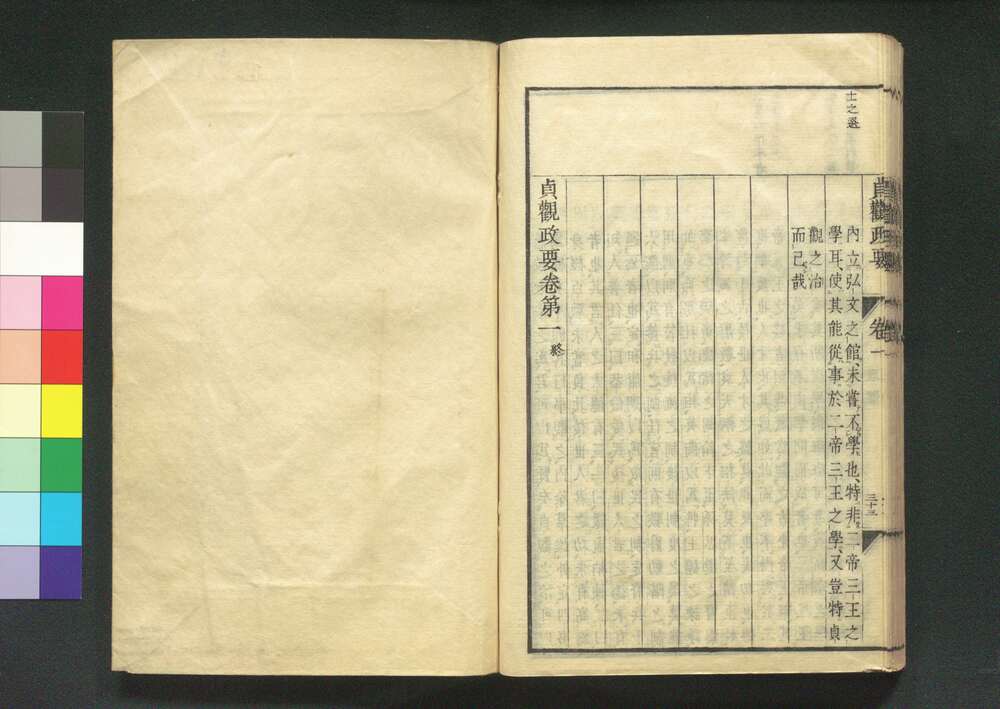 士之選
貞觀政要 卷一 三十三
內立弘文之館、未嘗不學也、特非二帝三王之
學耳、使其能從事於二帝三王之學、又豈特貞
觀之治
而已哉
貞觀政要卷第一 終